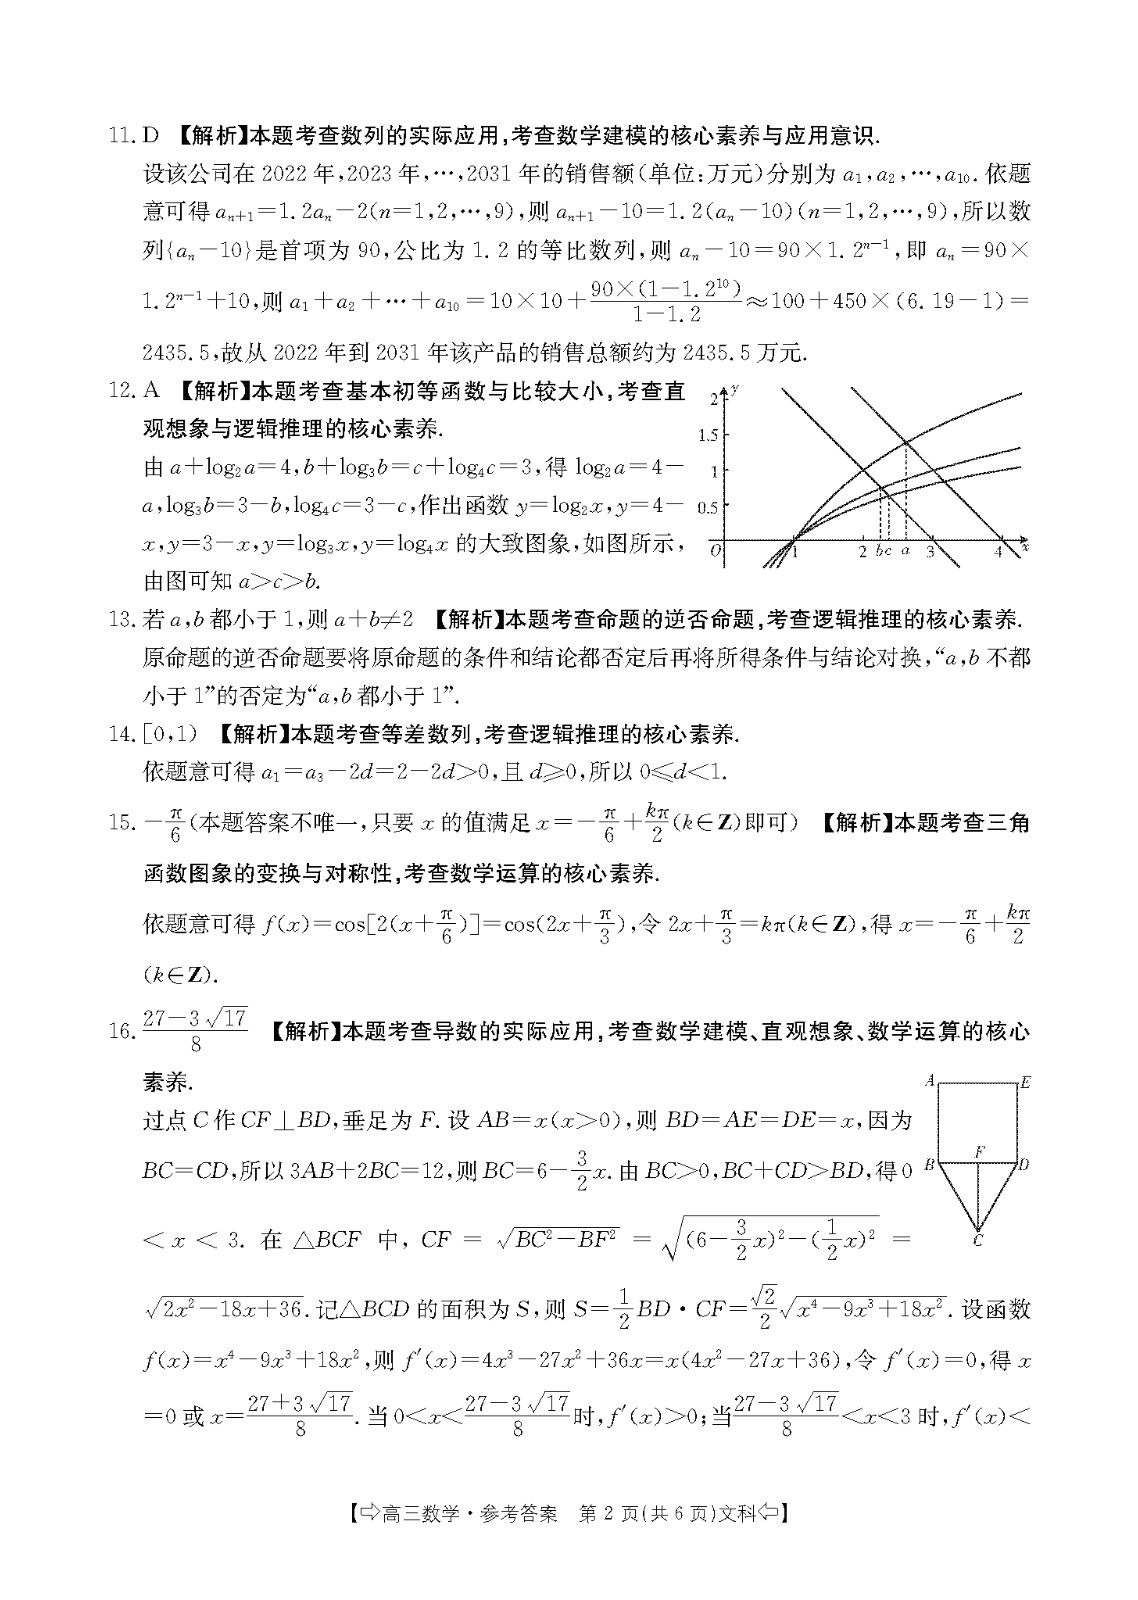 11. D 【解析】本题考查数列的实际应用,考查数学建模的核心素养与应用意识.
设该公司在 2022 年,2023 年,…,2031 年的销售额(单位:万元)分别为 a₁,a₂,…,a₁₀. 依题
意可得 aₙ₊₁=1.2aₙ-2(n=1,2,…,9),则 aₙ₊₁-10=1.2(aₙ-10)(n=1,2,…,9),所以数
列{aₙ-10}是首项为 90,公比为 1.2 的等比数列,则 aₙ-10=90×1.2ⁿ⁻¹,即 aₙ=90×
1.2ⁿ⁻¹+10,则 a₁+a₂+…+a₁₀=10×10+90×(1-1.2¹⁰)/(1-1.2)≈100+450×(6.19-1)=
2435.5,故从 2022 年到 2031 年该产品的销售总额约为 2435.5 万元.
12. A 【解析】本题考查基本初等函数与比较大小,考查直
观想象与逻辑推理的核心素养.
由 a+log₂a=4,b+log₃b=c+log₄c=3,得 log₂a=4-
a,log₃b=3-b,log₄c=3-c,作出函数 y=log₂x,y=4-
x,y=3-x,y=log₃x,y=log₄x 的大致图象,如图所示,
由图可知 a>c>b.
y
2
1.5
1
0.5
O 1 2 b c a 3 4 x
13. 若 a,b 都小于 1,则 a+b≠2 【解析】本题考查命题的逆否命题,考查逻辑推理的核心素养.
原命题的逆否命题要将原命题的条件和结论都否定后再将所得条件与结论对换,“a,b 不都
小于 1”的否定为“a,b 都小于 1”.
14. [0,1) 【解析】本题考查等差数列,考查逻辑推理的核心素养.
依题意可得 a₁=a₃-2d=2-2d>0,且 d⩾0,所以 0⩽d<1.
15. -π/6(本题答案不唯一,只要 x 的值满足 x=-π/6+kπ/2(k∈Z)即可) 【解析】本题考查三角
函数图象的变换与对称性,考查数学运算的核心素养.
依题意可得 f(x)=cos[2(x+π/6)]=cos(2x+π/3),令 2x+π/3=kπ(k∈Z),得 x=-π/6+kπ/2
(k∈Z).
16. (27-3√17)/8 【解析】本题考查导数的实际应用,考查数学建模、直观想象、数学运算的核心
素养.
过点 C 作 CF⊥BD,垂足为 F. 设 AB=x(x>0),则 BD=AE=DE=x,因为
BC=CD,所以 3AB+2BC=12,则 BC=6-3/2x. 由 BC>0,BC+CD>BD,得 0
<x<3. 在 △BCF 中, CF = √(BC²-BF²) = √((6-3/2x)²-(1/2x)²) =
√(2x²-18x+36). 记△BCD 的面积为 S,则 S=1/2BD·CF=√2/2√(x⁴-9x³+18x²). 设函数
f(x)=x⁴-9x³+18x²,则 f′(x)=4x³-27x²+36x=x(4x²-27x+36),令 f′(x)=0,得 x
=0 或 x=(27+3√17)/8. 当 0<x<(27-3√17)/8时,f′(x)>0;当(27-3√17)/8<x<3 时,f′(x)<
A E
B F D
C
【⇨高三数学·参考答案 第 2 页(共 6 页)文科⇦】